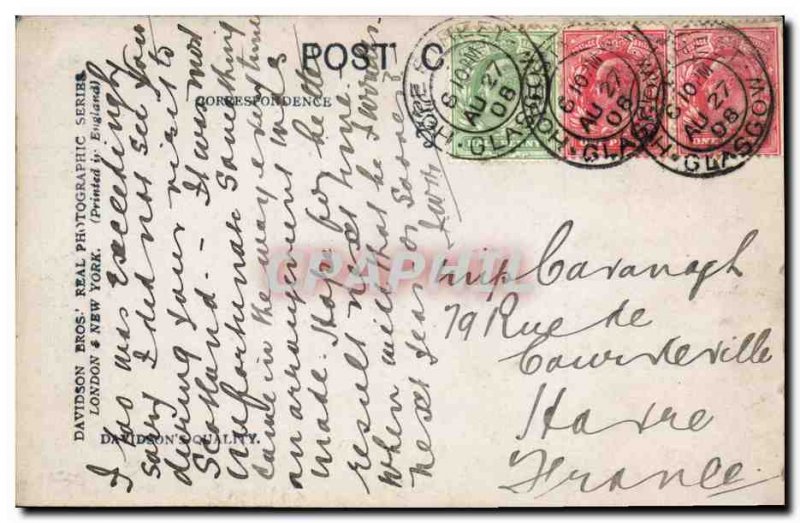 POST C
CORRESPONDENCE
DAVIDSON BROS.' REAL PHOTOGRAPHIC SERIES.
LONDON & NEW YORK. (Printed in England)
DAVIDSON'S QUALITY.
I too was exceedingly
sorry I did not see you
during your visit to
Scotland. - It was most
unfortunate Something
came in the way every time
an arrangement was
made. Hope for better
result next time.
when will that be
next year or sooner
Miss Cavanagh
79 Rue de
Courdeville
Havre
France
GLASGOW
6 10 PM
AU 27
08
GLASGOW
6 10 PM
AU 27
08
GLASGOW
6 10 PM
AU 27
08
CPAPHIL